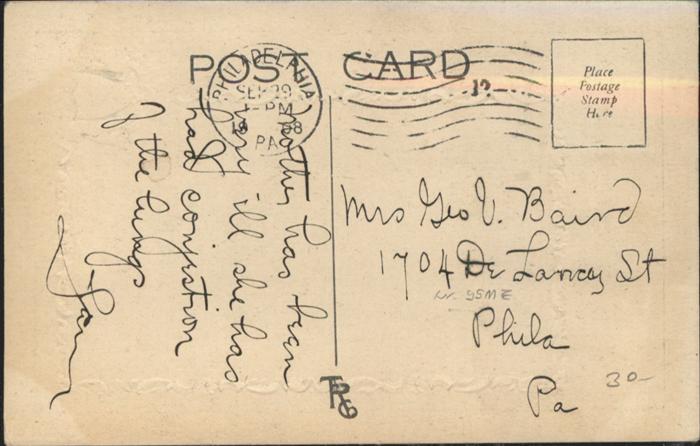 POST CARD
PHILADELPHIA
SEP 29
PM
PA
12
Place
Postage
Stamp
Here
Mother has been
very ill she has
had conjestion
of the lungs
Mrs Geo V. Baird
1704 De Lancey St
Phila
Pa
30-
TRG